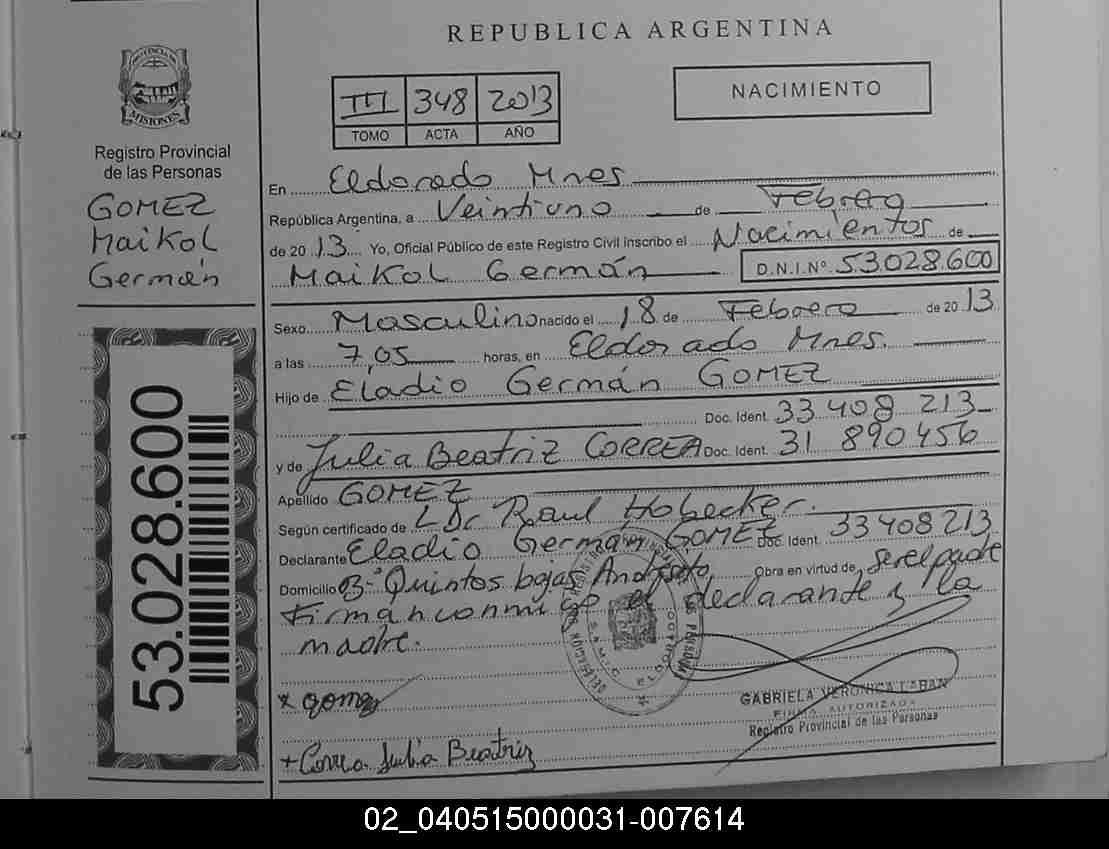 REPUBLICA ARGENTINA
PROVINCIA DE
MISIONES
Registro Provincial
de las Personas
GOMEZ
Maikol
Germán
53.028.600
III 348 2013
TOMO ACTA AÑO
NACIMIENTO
En Eldorado Mnes
República Argentina, a Veintiuno de Febrero
de 2013 Yo, Oficial Público de este Registro Civil inscribo el Nacimientos de
Maikol Germán D.N.I.Nº 53.028.600
Sexo Masculino nacido el 18 de Febrero de 2013
a las 7,05 horas, en Eldorado Mnes.
Hijo de Eladio Germán GOMEZ
Doc. Ident. 33 408 213
y de Julia Beatriz CORREA Doc. Ident. 31 890456
Apellido GOMEZ
Según certificado de Dr Raul Hobecker.
Declarante Eladio Germán GOMEZ Doc. Ident. 33408213
Domicilio Bº Quintos bajas Andresito, Obra en virtud de ser el padre
Firman conmigo el declarante y la
madre.
x gomez
GABRIELA VERONICA LABAN
FIRMA AUTORIZADA
Registro Provincial de las Personas
+ Correa Julia Beatriz
02_040515000031-007614